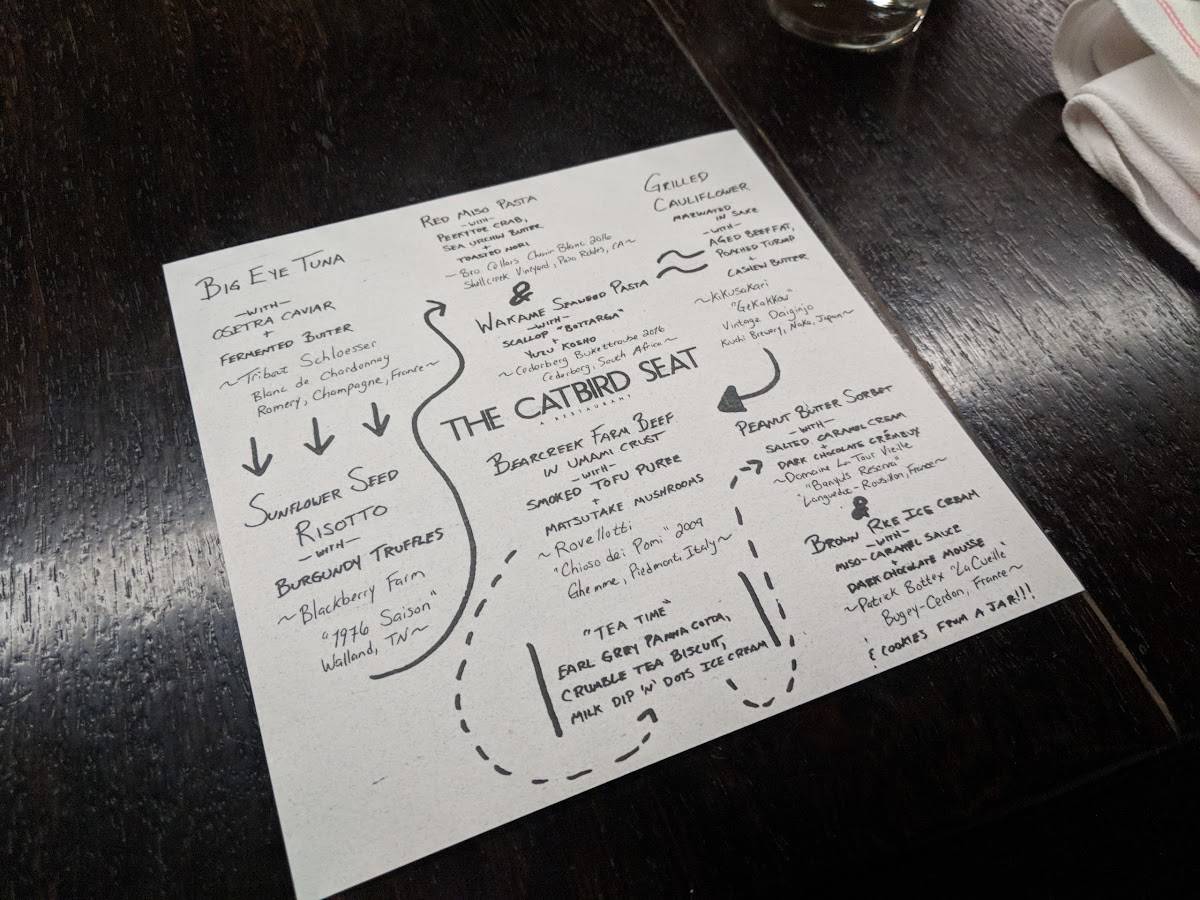 BIG EYE TUNA
-WITH-
OSETRA CAVIAR
+
FERMENTED BUTTER
~Tribat Schloesser
Blanc de Chardonnay
Romery, Champagne, France~
SUNFLOWER SEED
RISOTTO
-WITH-
BURGUNDY TRUFFLES
~Blackberry Farm
"1976 Saison"
Walland, TN~
RED MISO PASTA
-WITH-
PEEKYTOE CRAB,
SEA URCHIN BUTTER
+
TOASTED NORI
~Bro Cellars Chenin Blanc 2016
Shellcreek Vineyard, Paso Robles, CA~
&
WAKAME SEAWEED PASTA
-WITH-
SCALLOP "BOTTARGA"
+
YUZU KOSHO
~Cederberg Bukettraube 2016
Cederberg, South Africa~
GRILLED
CAULIFLOWER
MARINATED
IN SAKE
-WITH-
AGED BEEF FAT,
POACHED TURNIP
+
CASHEW BUTTER
~Kikusakari
"Gekakkow"
Vintage Daiginjo
Kiuchi Brewery, Naka, Japan~
THE CATBIRD SEAT
A RESTAURANT
BEARCREEK FARM BEEF
W UMAMI CRUST
-WITH-
SMOKED TOFU PUREE
+
MATSUTAKE MUSHROOMS
~Rovellotti
"Chioso dei Pomi" 2009
Ghemme, Piedmont, Italy~
"TEA TIME"
EARL GREY PANNA COTTA,
CRUMBLE TEA BISCUIT,
MILK DIP 'N' DOTS ICE CREAM
PEANUT BUTTER SORBET
-WITH-
SALTED CARAMEL CREAM
+
DARK CHOCOLATE CRÉMEUX
~Domaine La Tour Vieille
"Banyuls Reserva"
Languedoc-Rousillon, France~
&
BROWN RICE ICE CREAM
-WITH-
MISO-CARAMEL SAUCE
+
DARK CHOCOLATE MOUSSE
~Patrick Bottex "La Cueille"
Bugey-Cerdon, France~
& COOKIES FROM A JAR!!!